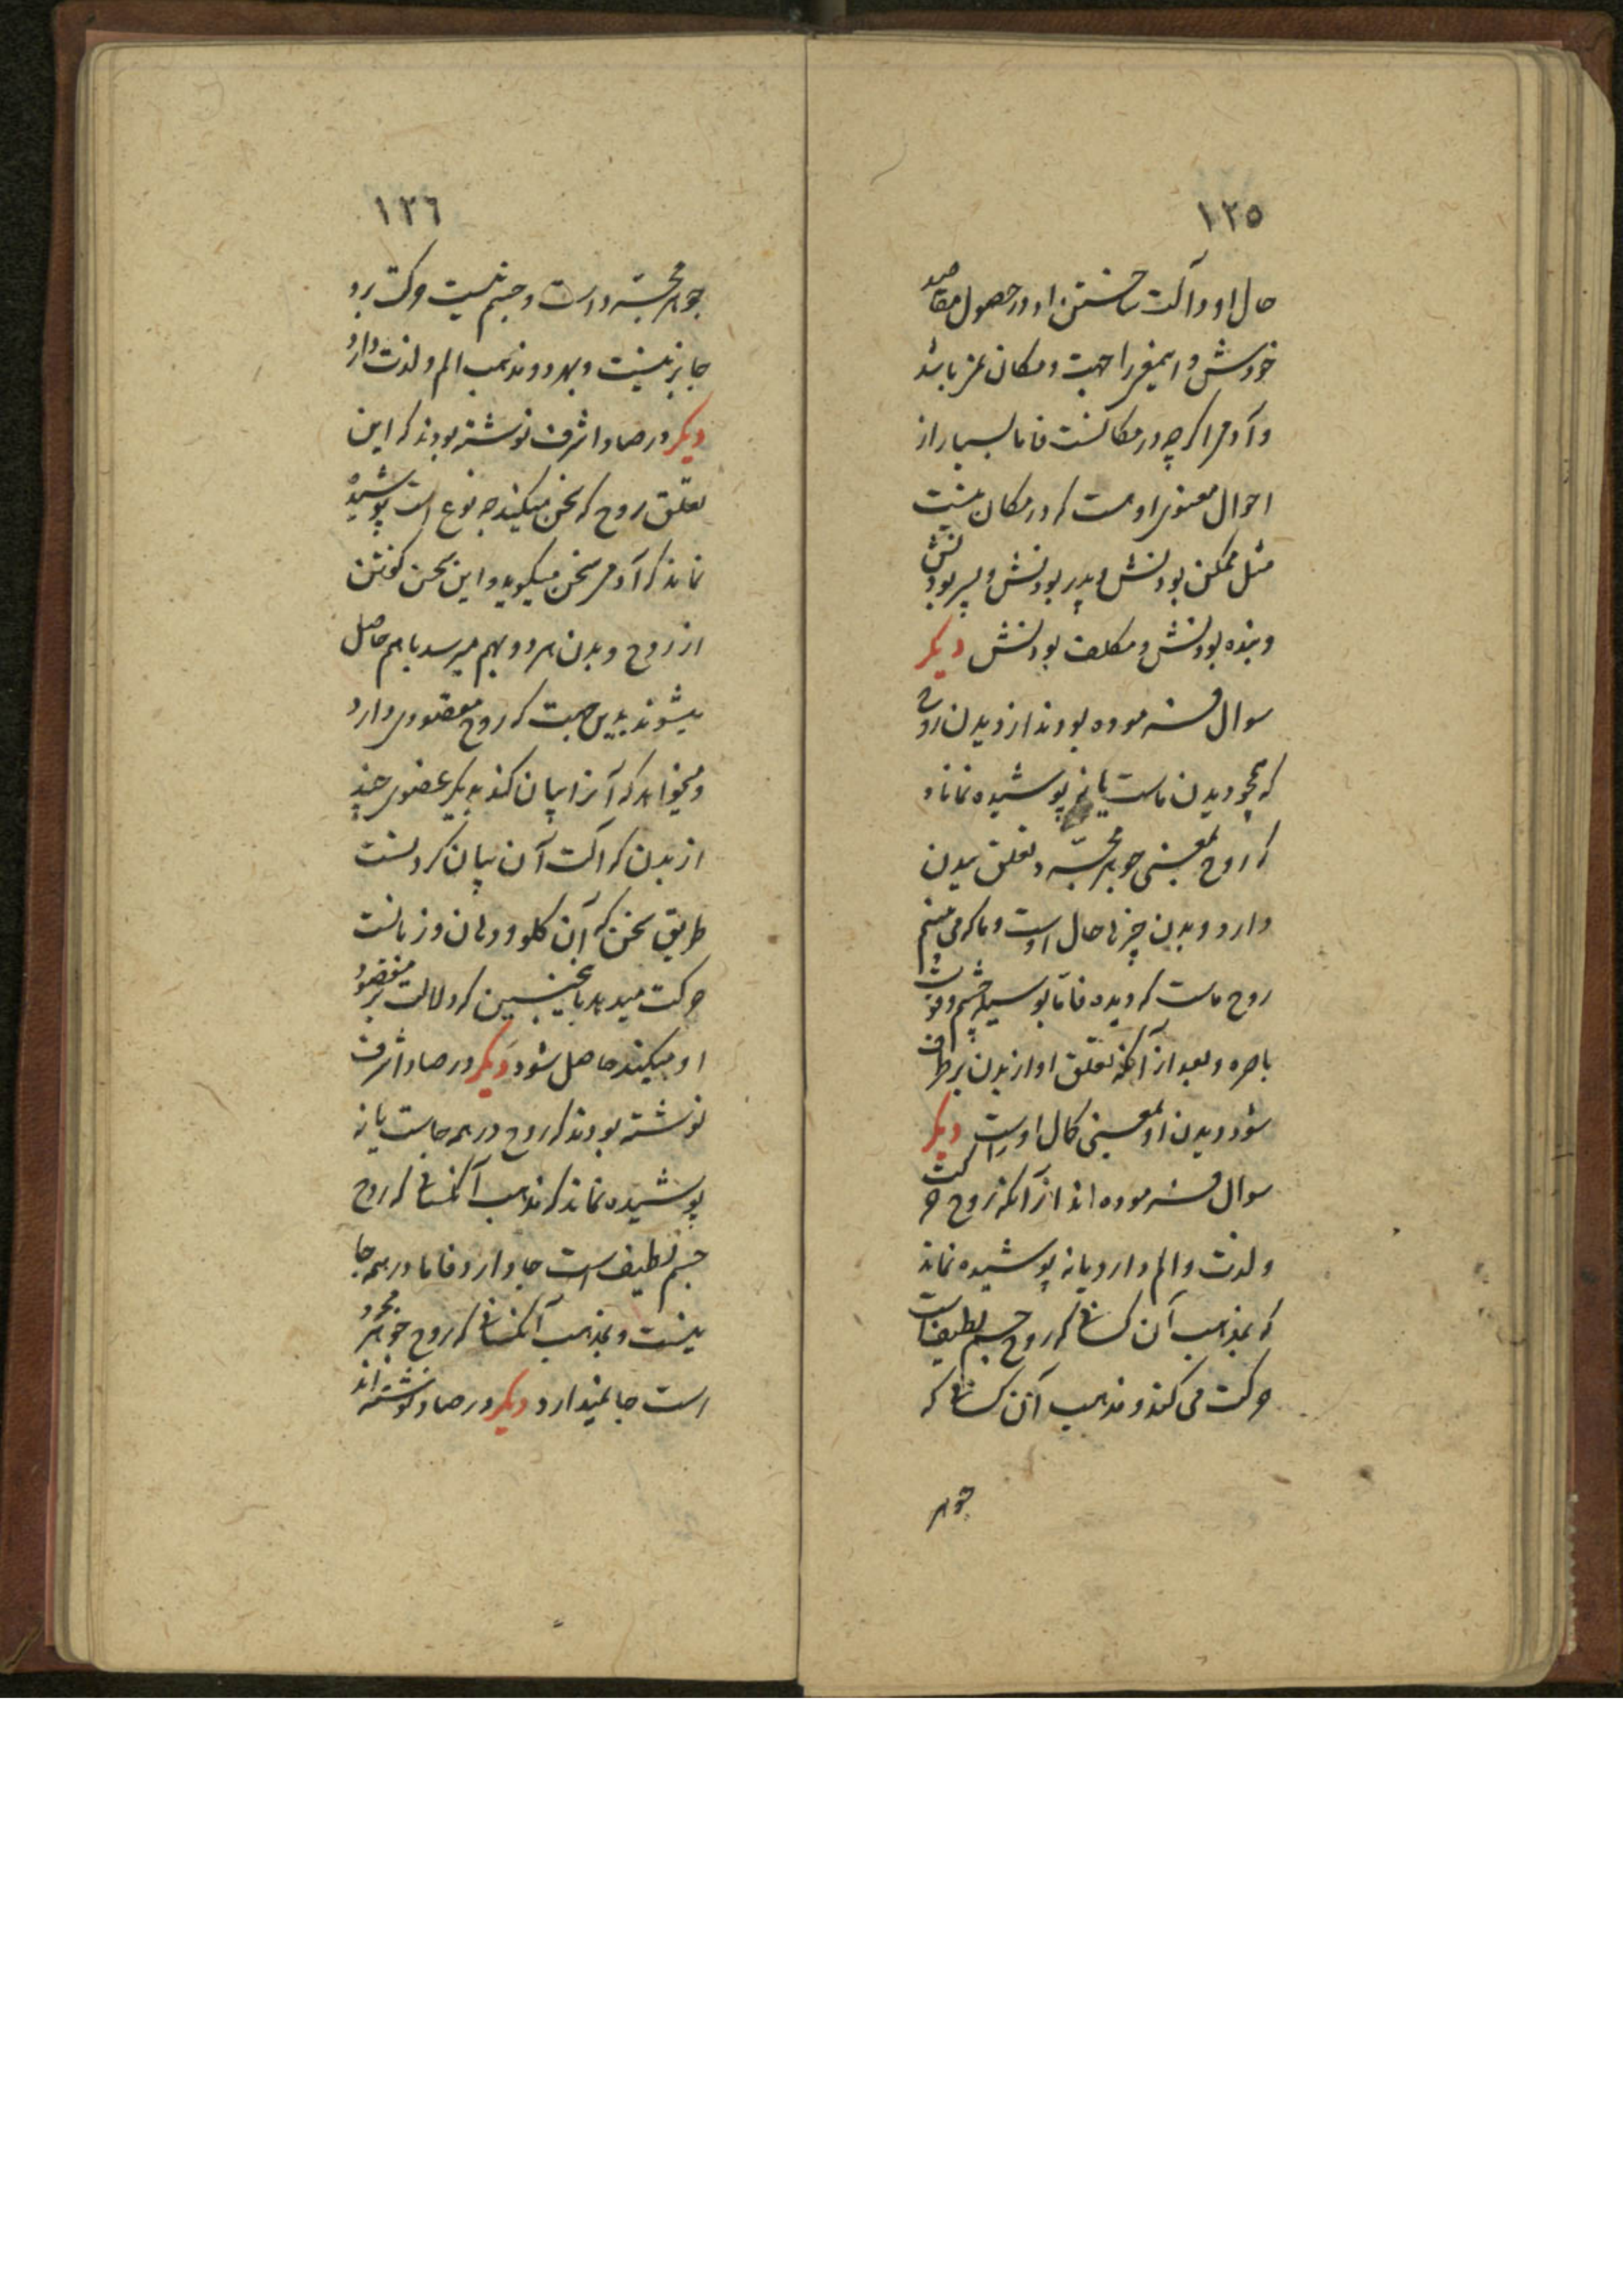 ١٢٥
حال او و آلت ساختن او در حصول مقاصد
خودش و اینمعنی را جهت و مکان نمی باشد
و آدمی اگرچه در مکانست فاما بسیار از
احوال معنوی او هست که در مکان نیست
مثل ممکن بودنش و پدر بودنش و پسر بودنش
و بنده بودنش و مکلف بودنش دیگر
سوال فرموده بودند از دیدن روح
که همچو دیدن ماست یا نه پوشیده نماناد
که روح بمعنی جوهر مجرد و تعلق ببدن
دارد و دیدن چیزها حال اوست و ما که می بینیم
روح ماست که دیده فاما بوسیله چشم و قوت
باصره و بعد از آنکه تعلق او از بدن برطرف
شود دیدن او بمعنی کمال اوست دیگر
سوال فرموده اند از آنکه روح حرکت
و لذت و الم دارد یا نه پوشیده نماند
که بمذهب آن کسانی که روح جسم لطیف است
حرکت می کند و مذهب آن کسانی که
جوهر
١٢٦
جوهر مجرد است و جسم نیست حرکت برو
جایز نیست و بهر دو مذهب الم و لذت دارد
دیگر در صاد اشرف نوشته بودند که این
تعلق روح که سخن میکند چه نوع است پوشیده
نماند که آدمی سخن میگوید و این سخن گفتن
از روح و بدن هر دو بهم میرسد با هم حاصل
میشوند بدین جهت که روح مقصودی دارد
و میخواهد که آنرا بیان کند به یک عضوی چند
از بدن که آلت آن بیان کردنست
طریق سخن که آن گلو و دهان و زبانست
حرکت میدهد تا سخنی که دلالت بر مقصود
او میکند حاصل شود دیگر در صاد اشرف
نوشته بودند که روح در همه جاست یا نه
پوشیده نماند که مذهب آنکسانی که روح
جسم لطیف است جا دارد فاما در همه جا
نیست و بمذهب آنکسانی که روح جوهر مجرد
است جا نمیدارد دیگر در صاد نوشته اند